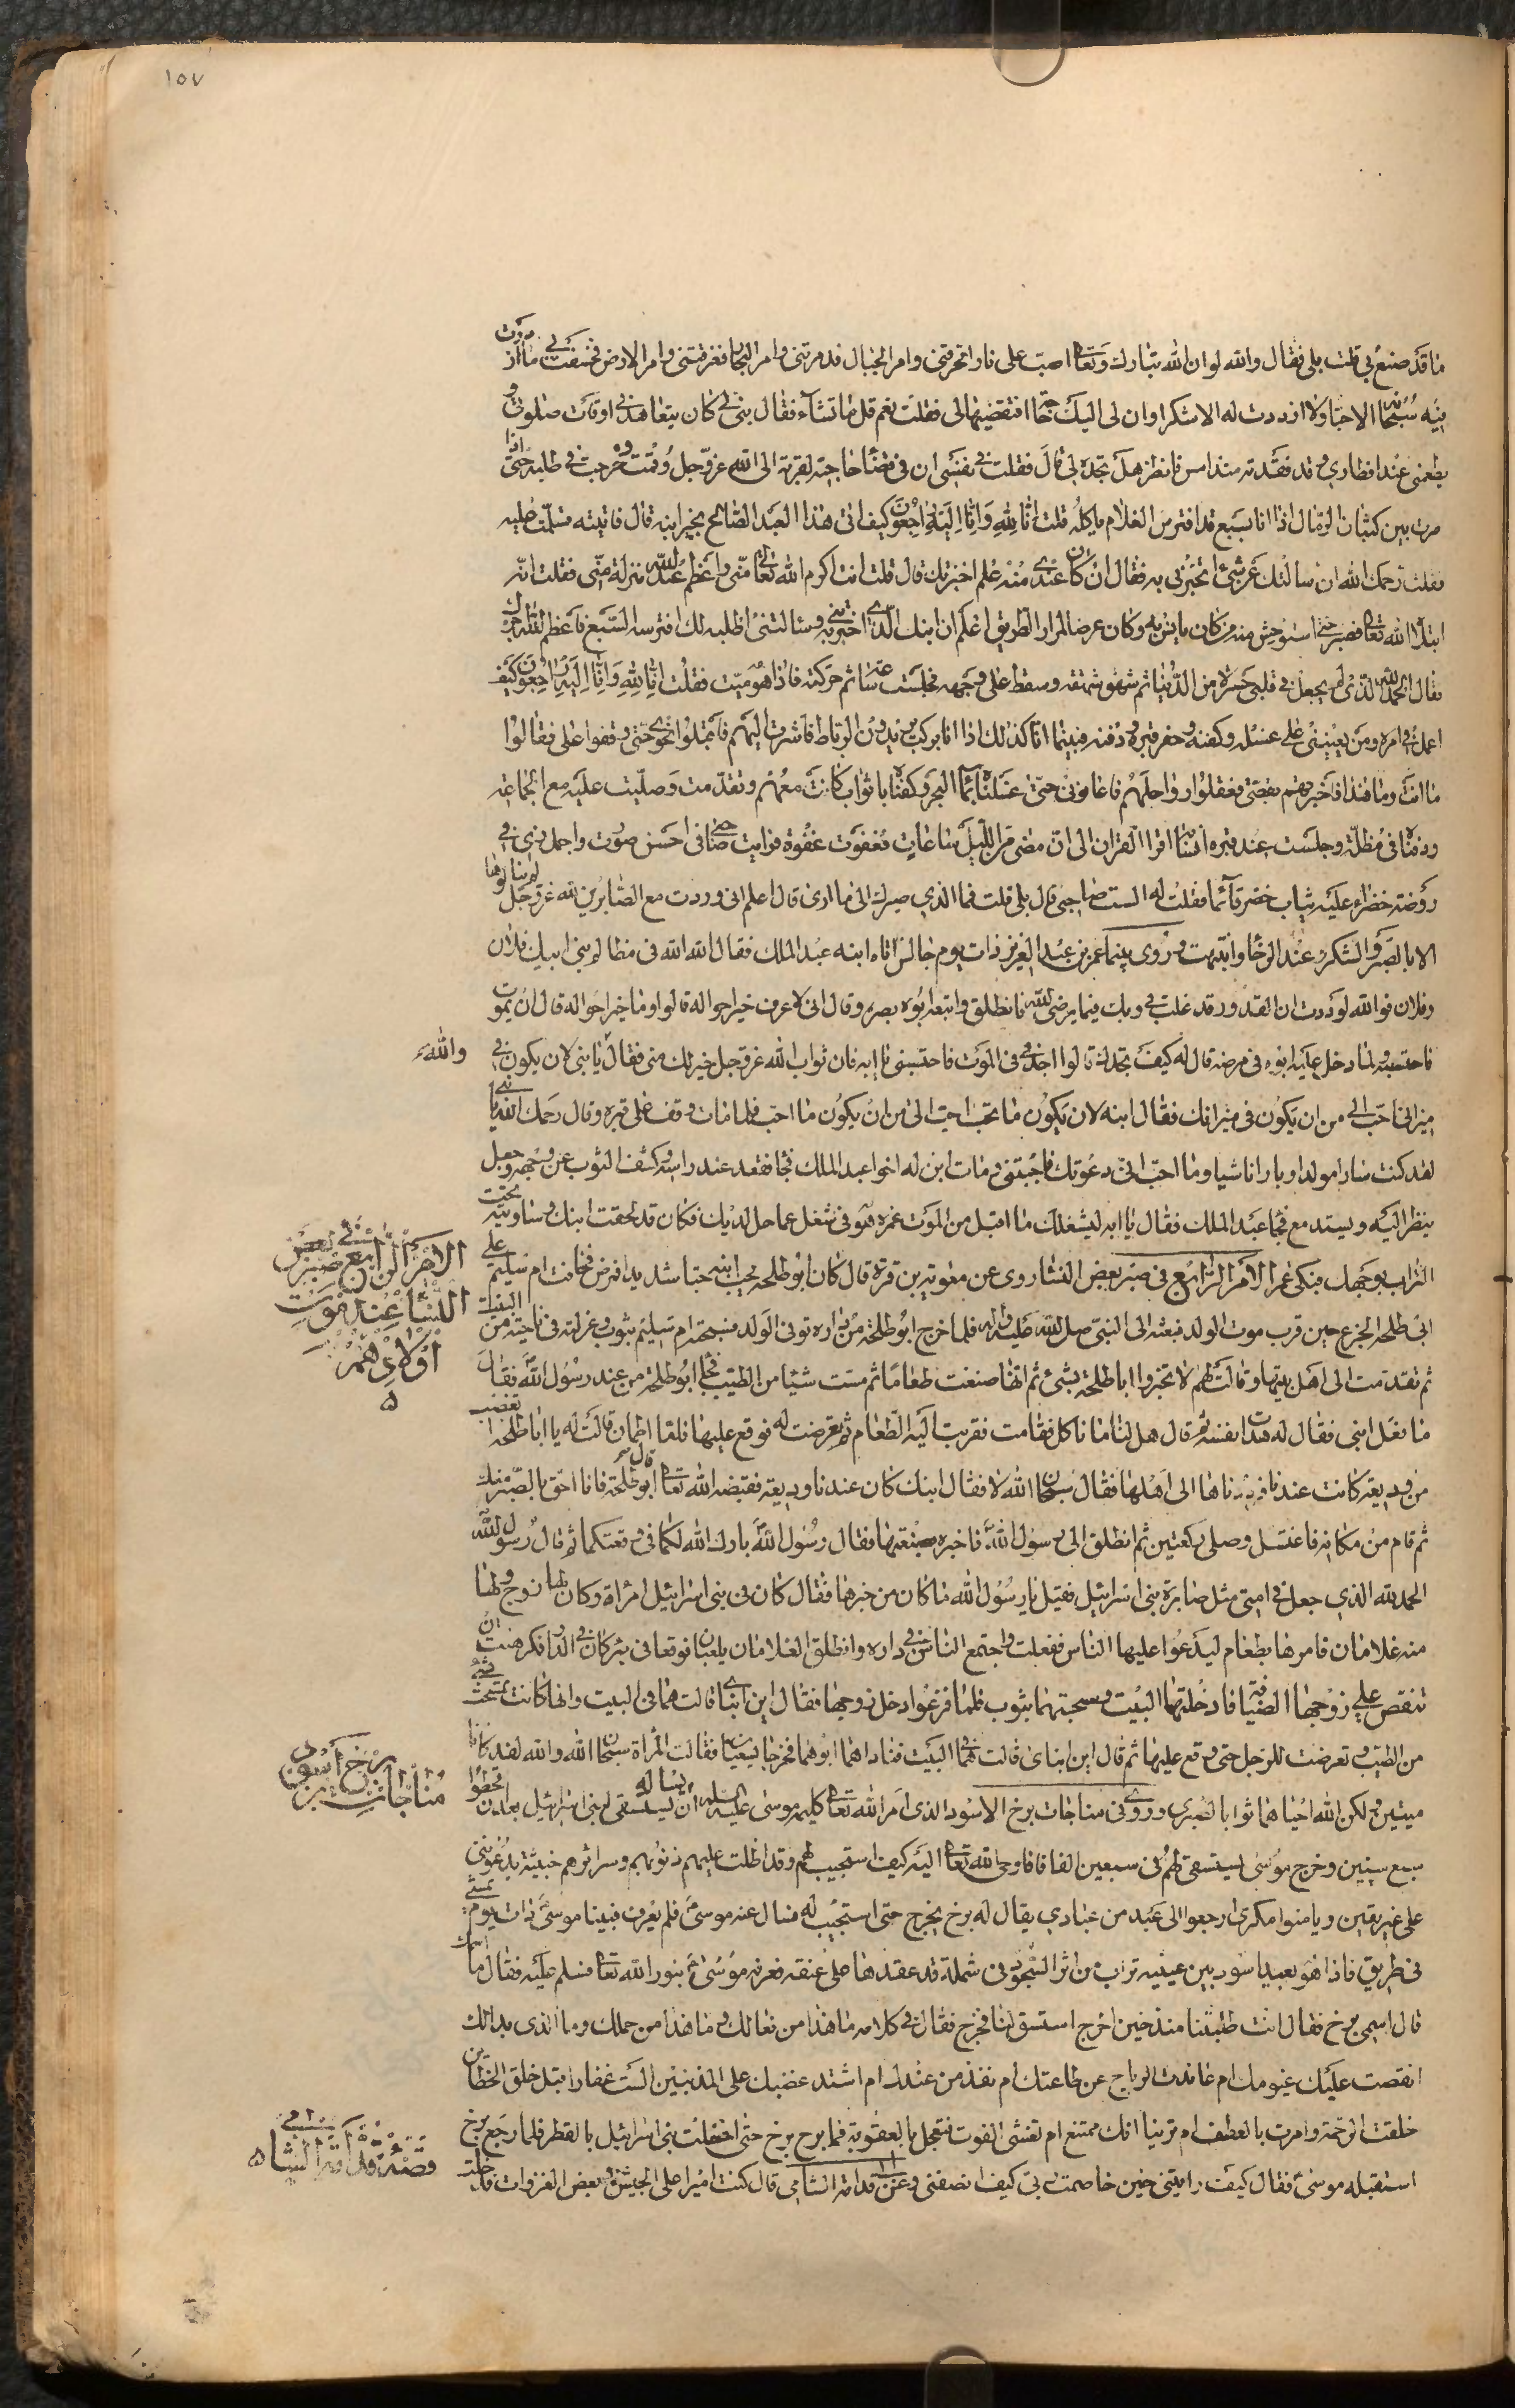 ١٥٧
ما قد صنع بي قلت بلى فقال والله لو ان الله تبارك وتعالى صب على نارا تحرقني وامر الجبال فدمرتني وامر البحار فغرقتني وامر الارض فخسفت بي ما ازددت
فيه سبحانه الا حبا ولا ازددت له الا شكرا وان لى اليك حاجة افتقضيها لى فقلت نعم قل ما تشاء فقال بني لي كان يتعاهدني اوقات صلوتي و
يطعمني عند افطاري وقد فقدته منذ امس فانظر هل تجده لي قال فقلت في نفسي ان في قضاء حاجته لقربة الى الله عز وجل وقمت وخرجت في طلبه حتى اذا
صرت بين كثبان الرمال اذا انا بسبع قد افترس الغلام ياكله قلت انا لله وانا اليه راجعون كيف اتى هذا العبد الصالح بخبر ابنه قال فاتيته فسلمت عليه
فقلت رحمك الله ان سالتك عن شيء اتخبرني به فقال ان كان عندي منه علم اخبرتك قال قلت انت اكرم الله تعالى منى واعظم عند الله منزلة منى فقلت انه
ابتلاه الله تعالى فصبر حتى استوحش منه من كان يانس به وكان عرضا لمرار الطريق اعلم ان ابنك الذي اخبرتني به وسالتني اطلبه لك افترسه السبع فاعظم الله اجرك
فقال الحمد لله الذي لم يجعل في قلبي حسرة من الدنيا ثم شهق شهقة وسقط على وجهه فجلست ساعة ثم حركته فاذا هو ميت فقلت انا لله وانا اليه راجعون كيف
اعمل في امره ومن يعينني على غسله وكفنه وحفر قبره ودفنه فبينما انا كذلك اذا انا بركب يريدون الرباط فاشرت اليهم فاقبلوا نحوي حتى وقفوا على فقالوا
ما انت وما هذا فاخبرتهم بقصتي فعقلوا رواحلهم فاعانوني حتى غسلناه بماء البحر وكفناه باثواب كانت معهم وتقدمت وصليت عليه مع الجماعة
ودفناه في مظلته وجلست عند قبره انسا اقرا القران الى ان مضى من الليل ساعات فغفوت غفوة فرايت صاحبي في احسن صورة واجمل زي في
روضة خضراء عليه ثياب خضر قائما فقلت له الست صاحبي قال بلى قلت فما الذي صيرك الى ما ارى قال اعلم انى وردت مع الصابرين لله عز وجل لم ينالوها
الا بالصبر والشكر عند الرخاء وانتبهت وروى بينما عمر بن عبد العزيز ذات يوم جالس اتاه ابنه عبد الملك فقال الله الله في مظالم بني ابيك فلان
وفلان فوالله لوددت ان القدور قد غلت بي وبك فيما يرضى الله فانطلق واتبعه ابوه بصره وقال انى لاعرف خير احواله قالوا وما خير احواله قال ان يموت
فاحتسبه ولما دخل عليه ابوه في مرضه قال له كيف تجدك قالوا اجدني في الموت فاحتسبني يا ابه فان ثواب الله عز وجل خير لك منى فقال يا بني لان يكون في
والله
ميزاني احب الى من ان يكون في ميزانك فقال ابنه لان يكون ما تحب احب الى من ان يكون ما احب فلما مات وقف على قبره وقال رحمك الله يا بني
لقد كنت سارا مولدا وبارا ناشيا وما احب انى دعوتك فاجبتني ومات ابن له اخو عبد الملك فجاء فقعد عند راسه وكشف الثوب عن وجهه وجعل
ينظر اليه ويستدمع فجاء عبد الملك فقال يا ابه ليشغلك ما اقبل من الموت عمن هو في شغل عما حل لديك فكان قد لحقت ابنك وساويته تحت
التراب بوجهك فبكى عمر الامر الرابع في صبر بعض النساء روى عن معوية بن قرة قال كان ابو طلحة يحب ابنه حبا شديدا فمرض فخافت ام سليم على
الامر الرابع في صبر بعض
النساء عند موت
اولادهم
ابي طلحة الجزع حين قرب موت الولد فبعثته الى النبي صلى الله عليه واله فلما خرج ابو طلحة من داره توفى الولد فسجته ام سليم بثوب وعزلته في ناحية من البيت
ثم تقدمت الى اهل بيتها وقالت لهم لا تخبروا ابا طلحة بشيء ثم انها صنعت طعاما ثم مست شيئا من الطيب فجاء ابو طلحة من عند رسول الله فقال
ما فعل ابني فقال له هدات نفسه ثم قال هل لنا ما ناكل فقامت فقربت اليه الطعام ثم تعرضت له فوقع عليها فلما اطمان قالت له يا ابا طلحة اتغضب
من وديعة كانت عندنا فرددناها الى اهلها فقال سبحان الله لا فقال ابنك كان عندنا وديعة فقبضه الله تعالى قال ابو طلحة فانا احق بالصبر منك
ثم قام من مكانه فاغتسل وصلى ركعتين ثم انطلق الى رسول الله فاخبره بصنعتها فقال رسول الله بارك الله لكما في وقعتكما ثم قال رسول الله
الحمد لله الذي جعل في امتي مثل صابرة بني اسرائيل فقيل يا رسول الله ما كان من خبرها فقال كان في بني اسرائيل امراة وكان لها زوج ولها
منه غلامان فامرها بطعام ليدعوا عليها الناس ففعلت واجتمع الناس في داره وانطلق الغلامان يلعبان فوقعا في بئر كان في الدار فكرهت ان
تنقص على زوجها الضيافة فادخلتهما البيت وسجتهما بثوب فلما فرغوا دخل زوجها فقال اين ابناي قالت هما في البيت وانها كانت تمسحت بشيء
من الطيب وتعرضت للرجل حتى وقع عليها ثم قال اين ابناى قالت هما في البيت فناداهما ابوهما فخرجا يسعيان فقالت المراة سبحان الله والله لقد كانا
ميتين ولكن الله احياهما ثوابا لصبري وروى في مناجات برخ الاسود الذي امر الله تعالى كليمه موسى عليه السلام ان يساله يستسقى لبني اسرائيل بعد ان قحطوا
مناجات برخ اسود
سبع سنين وخرج موسى ليستسقى لهم في سبعين الفا فاوحى الله تعالى اليه كيف استجيب لهم وقد اظلت عليهم ذنوبهم وسرائرهم خبيثة يدعونني
على غير يقين ويامنوا مكري ارجعوا الى عبد من عبادي يقال له برخ يخرج حتى استجيب له فسال عنه موسى فلم يعرف فبينا موسى ذات يوم يمشي
في طريق فاذا هو بعبد اسود بين عينيه تراب من اثر السجود في شملة قد عقدها على عنقه فعرفه موسى بنور الله تعالى فسلم عليه فقال ما اسمك
قال اسمي برخ فقال انت طلبتنا منذ حين اخرج استسق لنا فخرج فقال في كلامه ما هذا من فعالك وما هذا من حملك وما الذي بدا لك
انقصت عليك غيومك ام عاندت الرياح عن طاعتك ام نفذ من عندك ام اشتد غضبك على المذنبين الست غفارا قبل خلق الخطائين
خلقت الرحمة وامرت بالعطف ام ترينا انك ممتنع ام تخشى الفوت فتعجل بالعقوبة فما برح برخ حتى اخضلت بني اسرائيل بالقطر فلما رجع برخ
استقبله موسى فقال كيف رايتني حين خاصمت ربي كيف انصفني وعن قدامة الشامي قال كنت اميرا على الجيش في بعض الغزوات فدخلت
قصة قدامة الشامي